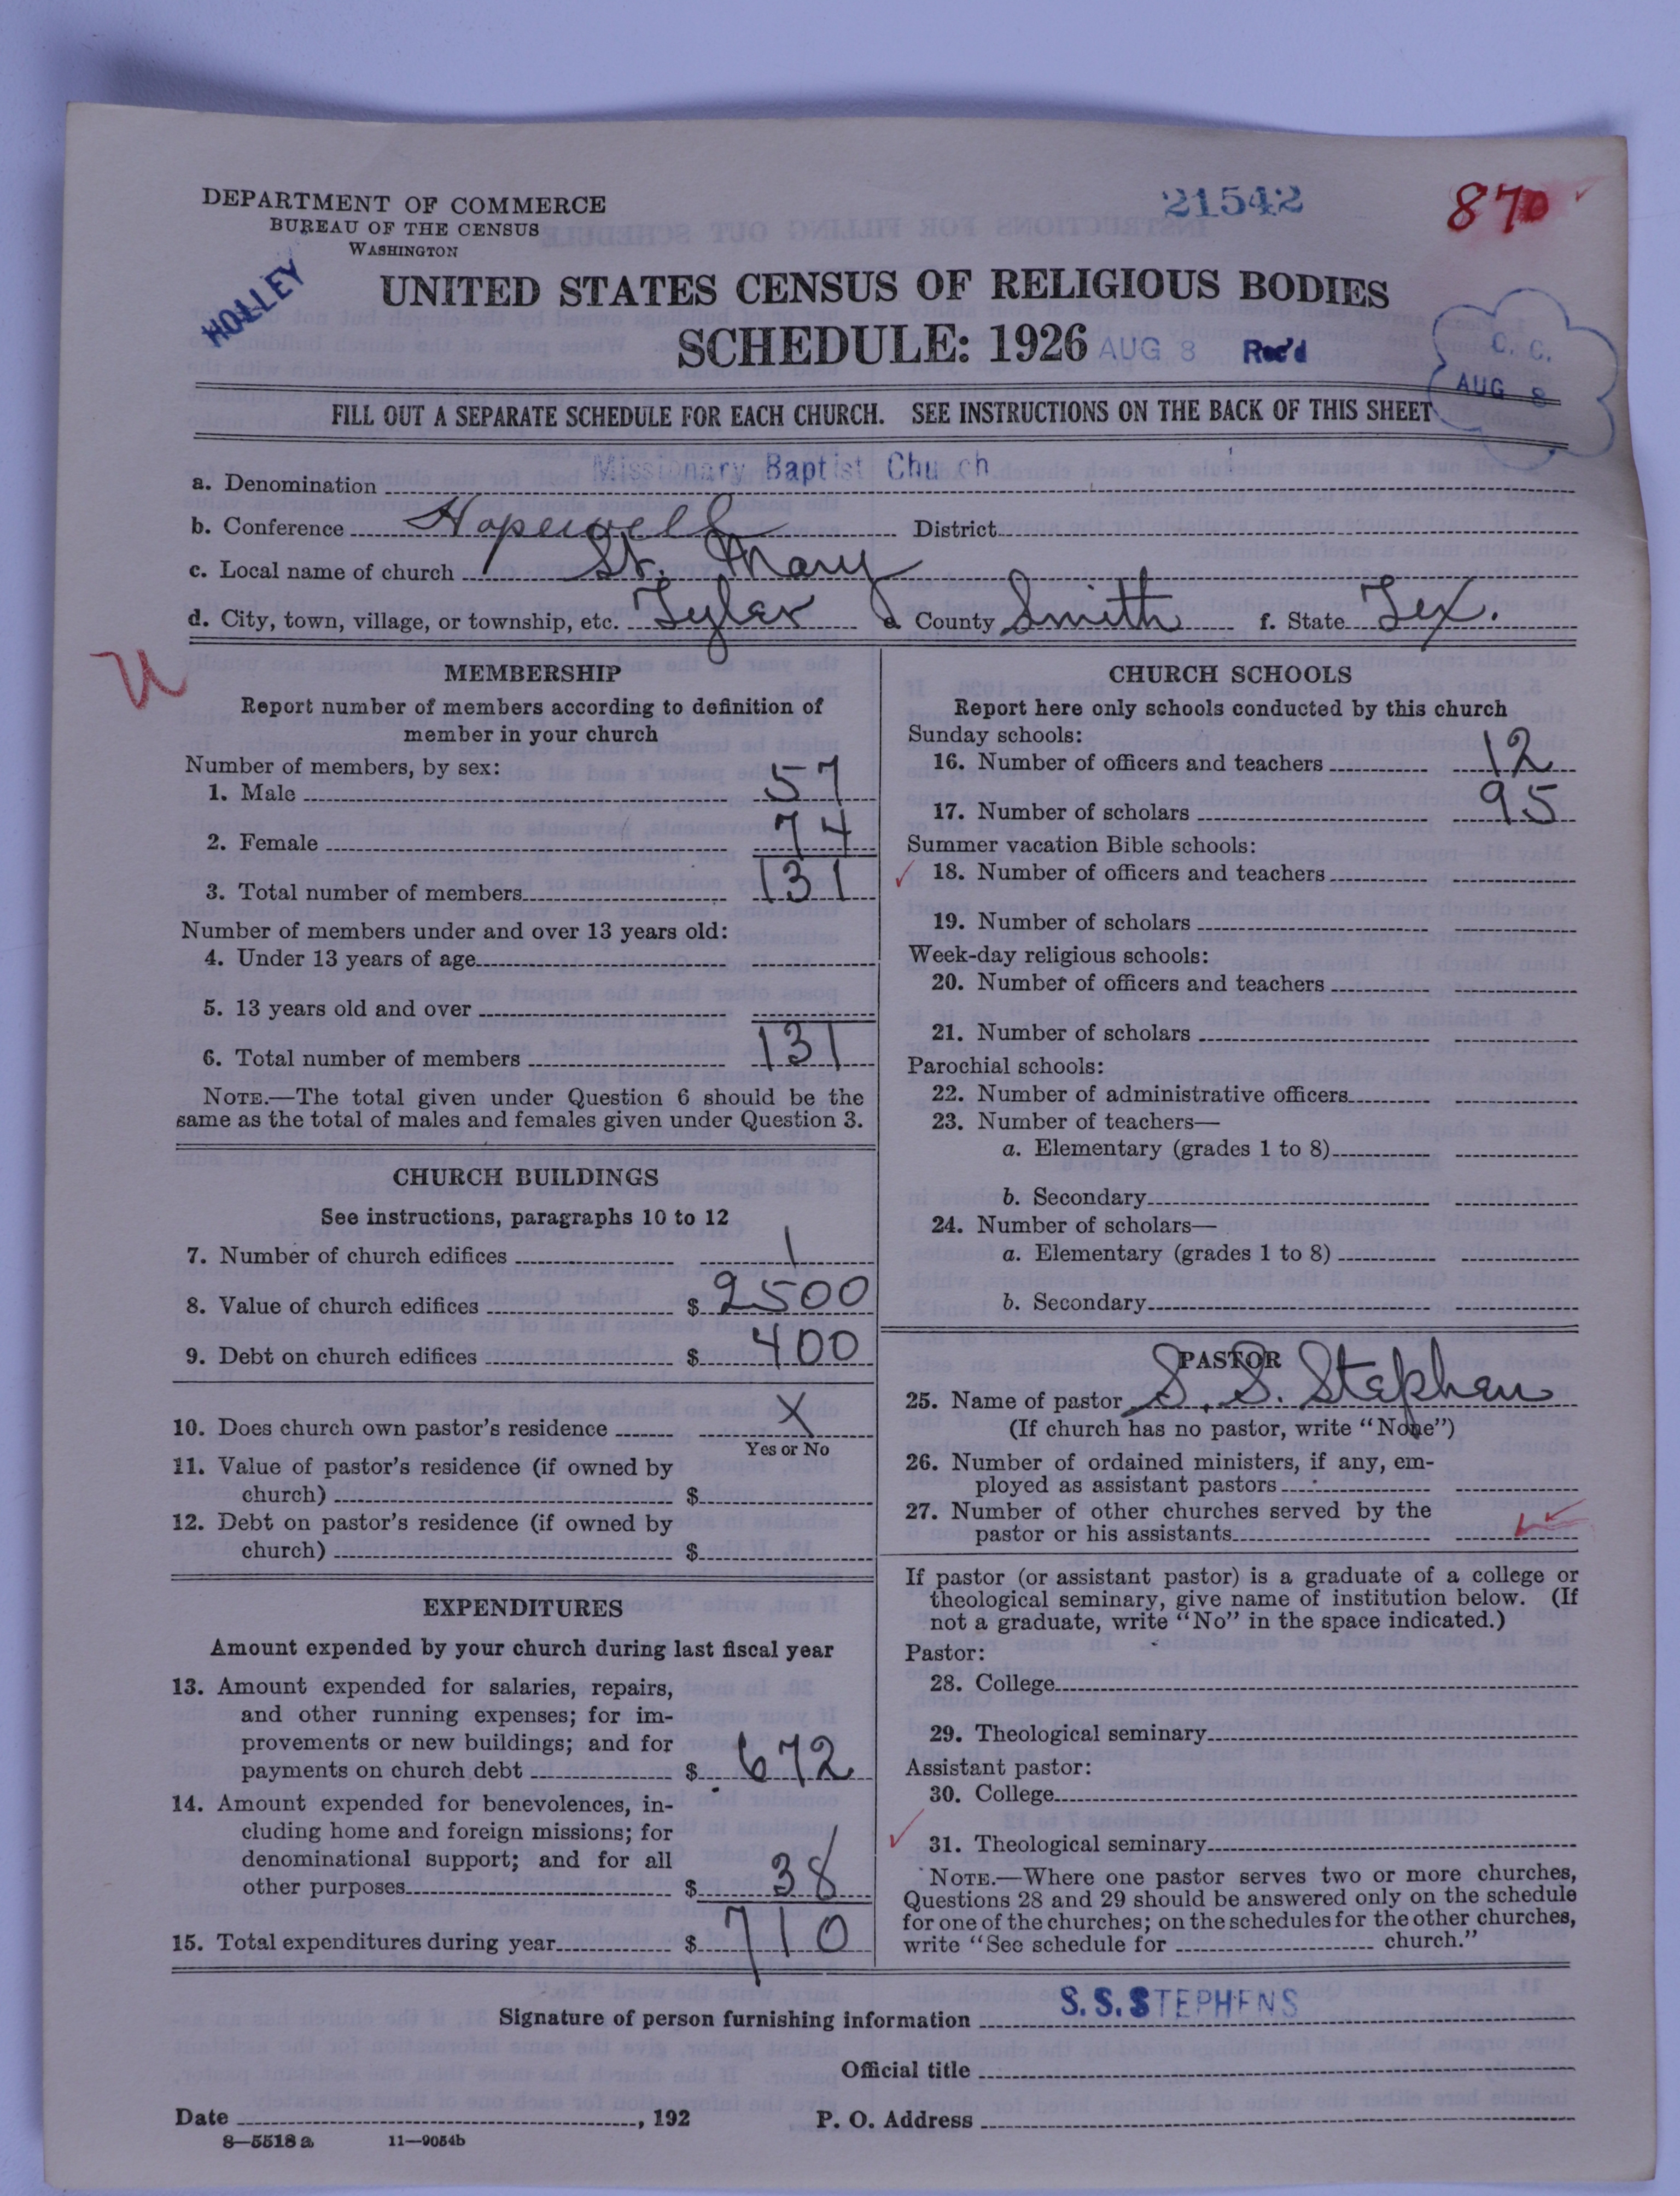 DEPARTMENT OF COMMERCE
BUREAU OF THE CENSUS
WASHINGTON
21542
870
HOLLEY
UNITED STATES CENSUS OF RELIGIOUS BODIES
SCHEDULE: 1926
AUG 8 Rec'd
C. C.
AUG 8
FILL OUT A SEPARATE SCHEDULE FOR EACH CHURCH. SEE INSTRUCTIONS ON THE BACK OF THIS SHEET
a. Denomination Missionary Baptist Chu ch
b. Conference Hopewell District
c. Local name of church St. Mary
d. City, town, village, or township, etc. Tyler e. County Smith f. State Tex.
U
MEMBERSHIP
Report number of members according to definition of
member in your church
Number of members, by sex:
1. Male 57
2. Female 74
3. Total number of members 131
Number of members under and over 13 years old:
4. Under 13 years of age
5. 13 years old and over
6. Total number of members 131
NOTE.—The total given under Question 6 should be the
same as the total of males and females given under Question 3.
CHURCH BUILDINGS
See instructions, paragraphs 10 to 12
7. Number of church edifices 1
8. Value of church edifices $ 2500
9. Debt on church edifices $ 400
10. Does church own pastor's residence X
Yes or No
11. Value of pastor's residence (if owned by
church) $
12. Debt on pastor's residence (if owned by
church) $
EXPENDITURES
Amount expended by your church during last fiscal year
13. Amount expended for salaries, repairs,
and other running expenses; for im-
provements or new buildings; and for
payments on church debt $ 672
14. Amount expended for benevolences, in-
cluding home and foreign missions; for
denominational support; and for all
other purposes $ 38
15. Total expenditures during year $ 710
CHURCH SCHOOLS
Report here only schools conducted by this church
Sunday schools:
16. Number of officers and teachers 12
17. Number of scholars 95
Summer vacation Bible schools:
18. Number of officers and teachers
19. Number of scholars
Week-day religious schools:
20. Number of officers and teachers
21. Number of scholars
Parochial schools:
22. Number of administrative officers
23. Number of teachers—
a. Elementary (grades 1 to 8)
b. Secondary
24. Number of scholars—
a. Elementary (grades 1 to 8)
b. Secondary
PASTOR
25. Name of pastor S. S. Stephen
(If church has no pastor, write "None")
26. Number of ordained ministers, if any, em-
ployed as assistant pastors
27. Number of other churches served by the
pastor or his assistants
If pastor (or assistant pastor) is a graduate of a college or
theological seminary, give name of institution below. (If
not a graduate, write "No" in the space indicated.)
Pastor:
28. College
29. Theological seminary
Assistant pastor:
30. College
31. Theological seminary
NOTE.—Where one pastor serves two or more churches,
Questions 28 and 29 should be answered only on the schedule
for one of the churches; on the schedules for the other churches,
write "See schedule for church."
Signature of person furnishing information S. S. STEPHENS
Official title
Date , 192 P. O. Address
8—5518 a 11—9054b